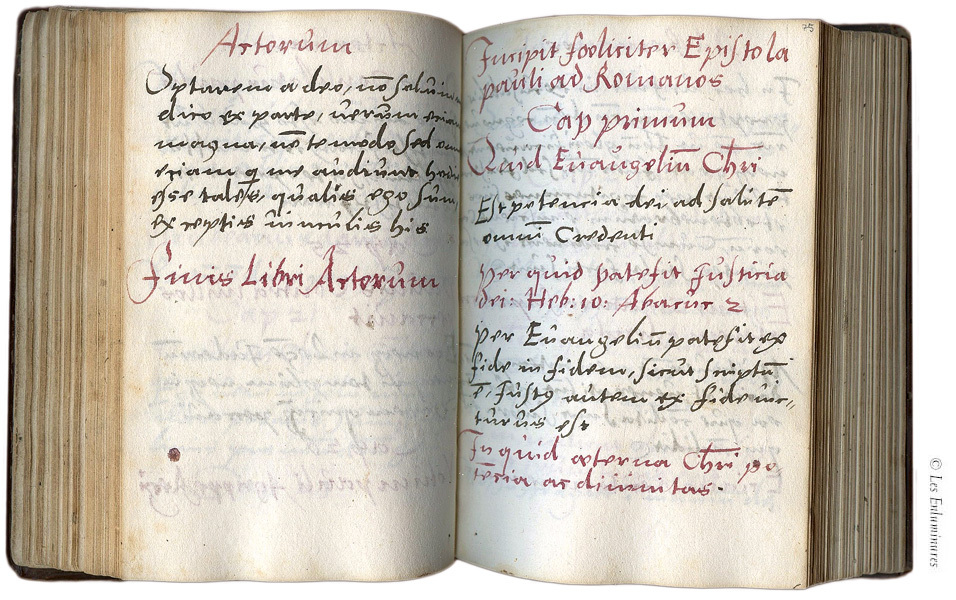 Actorum
Optarem a deo, nō solum
dico ex parte, verum etiam
magna, nō te modo sed om
etiam q me audiunt hodie
esse tales, qualis ego sum
exceptis vinculis his
Finis Libri Actorum
75
Incipit foeliciter Epistola
pauli ad Romanos
Cap primum
Quid Euangeliū Chri
Est potencia dei ad salutē
omni Credenti
per quid patefit Justicia
dei: Heb: 10: Abacuc 2
per Euangeliū patefit ex
fide in fidem, sicut scriptū
ē, Justꝰ autem ex fide vic-
turus est
In quid æterna Chri po
tēcia ac divinitas.
© Les Enluminures